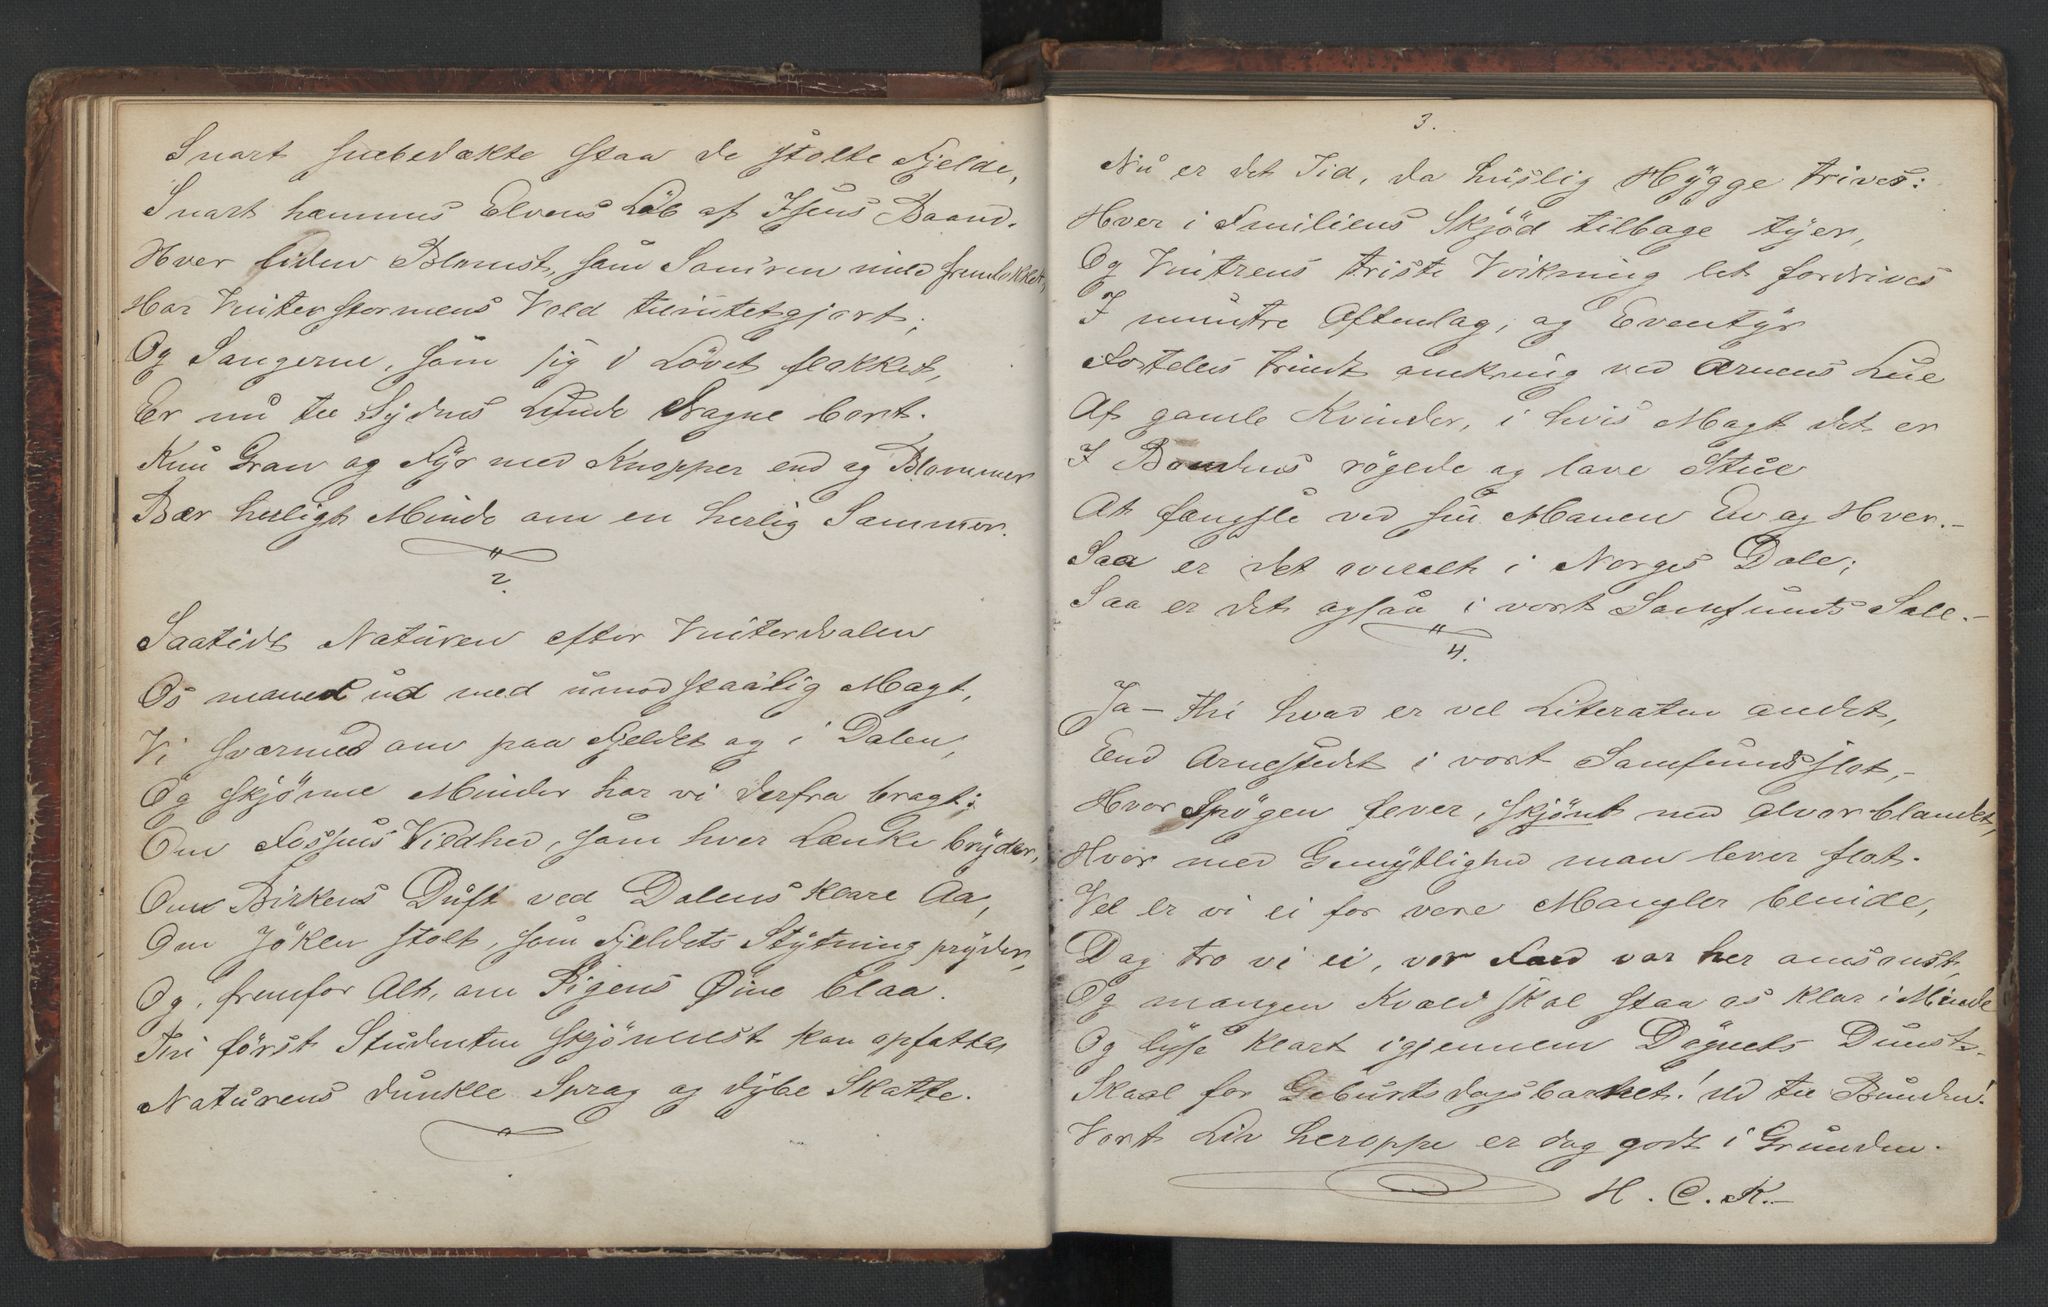 Snart sneebedækte staa de stolte Fjelde,
Snart hæmmes Elvens Løb af Isens Baand.
Hver liden Blomst, som Som̄ren mild fremlokket,
Har Vinterstormens Vold tilintetgjort;
Og Sangerne, som sig i Løvet flokket,
Er nu til Sydens Lunde dragne bort.
Kun Gran og Fyr med Knopper end og Blommer
Bær herligt Minde om en herlig Sommer.
2
Saatidt Naturen efter Vinterdvalen
Os maned ud med umodstaalig Magt,
Vi sværmed om paa Fjeldet og i Dalen,
Og skjønne Minder har vi derfra bragt:
Om Fossens Vildhed, som hver Lænke bryder,
Om Birkens Duft ved Dalens klare Aa,
Om Jøklen stolt, som Fjeldets Stytning pryder,
Og, fremfor Alt, om Pigens Øine blaa.
Thi først Studenten skjønnest kan opfatte
Naturens dunkle Sprog og dybe Skatte.
3.
Nu er det Tid, da huslig Hygge trives:
Hver i Familiens Skjød tilbage tyer,
Og Vintrens triste Virkning let fordrives
I muntre Aftenlag, og Eventyr
Fortelles trindt omkring ved Arnens Lue
Af gamle Kvinder, i hvis Magt det er
I Bondens røgede og lave Stue
At fængsle ved sin Manen En og Hver.-
Saa er det overalt i Norges Dale;
Saa er det ogsaa i vort Samfunds Sale.-
4.
Ja - thi hvad er vel Literaten andet,
End Arnestedet i vort Samfundsslot,-
Hvor Spøgen lever, skjønt med Alvor blandet,
Hvor med Gemytlighed man lever flot.
Vel er vi ei for vore Mangler blinde,
Dog tro vi ei, vor Færd var her omsonst,
Og mangen Kvæld skal staa os klar i Minde
Og lyse klart igjennem Døgnets Dunst.-
Skaal for Geburtsdagsbarnet! Ud til Bunden!
Vort Liv heroppe er dog godt i Grunden.
H. C. K.-